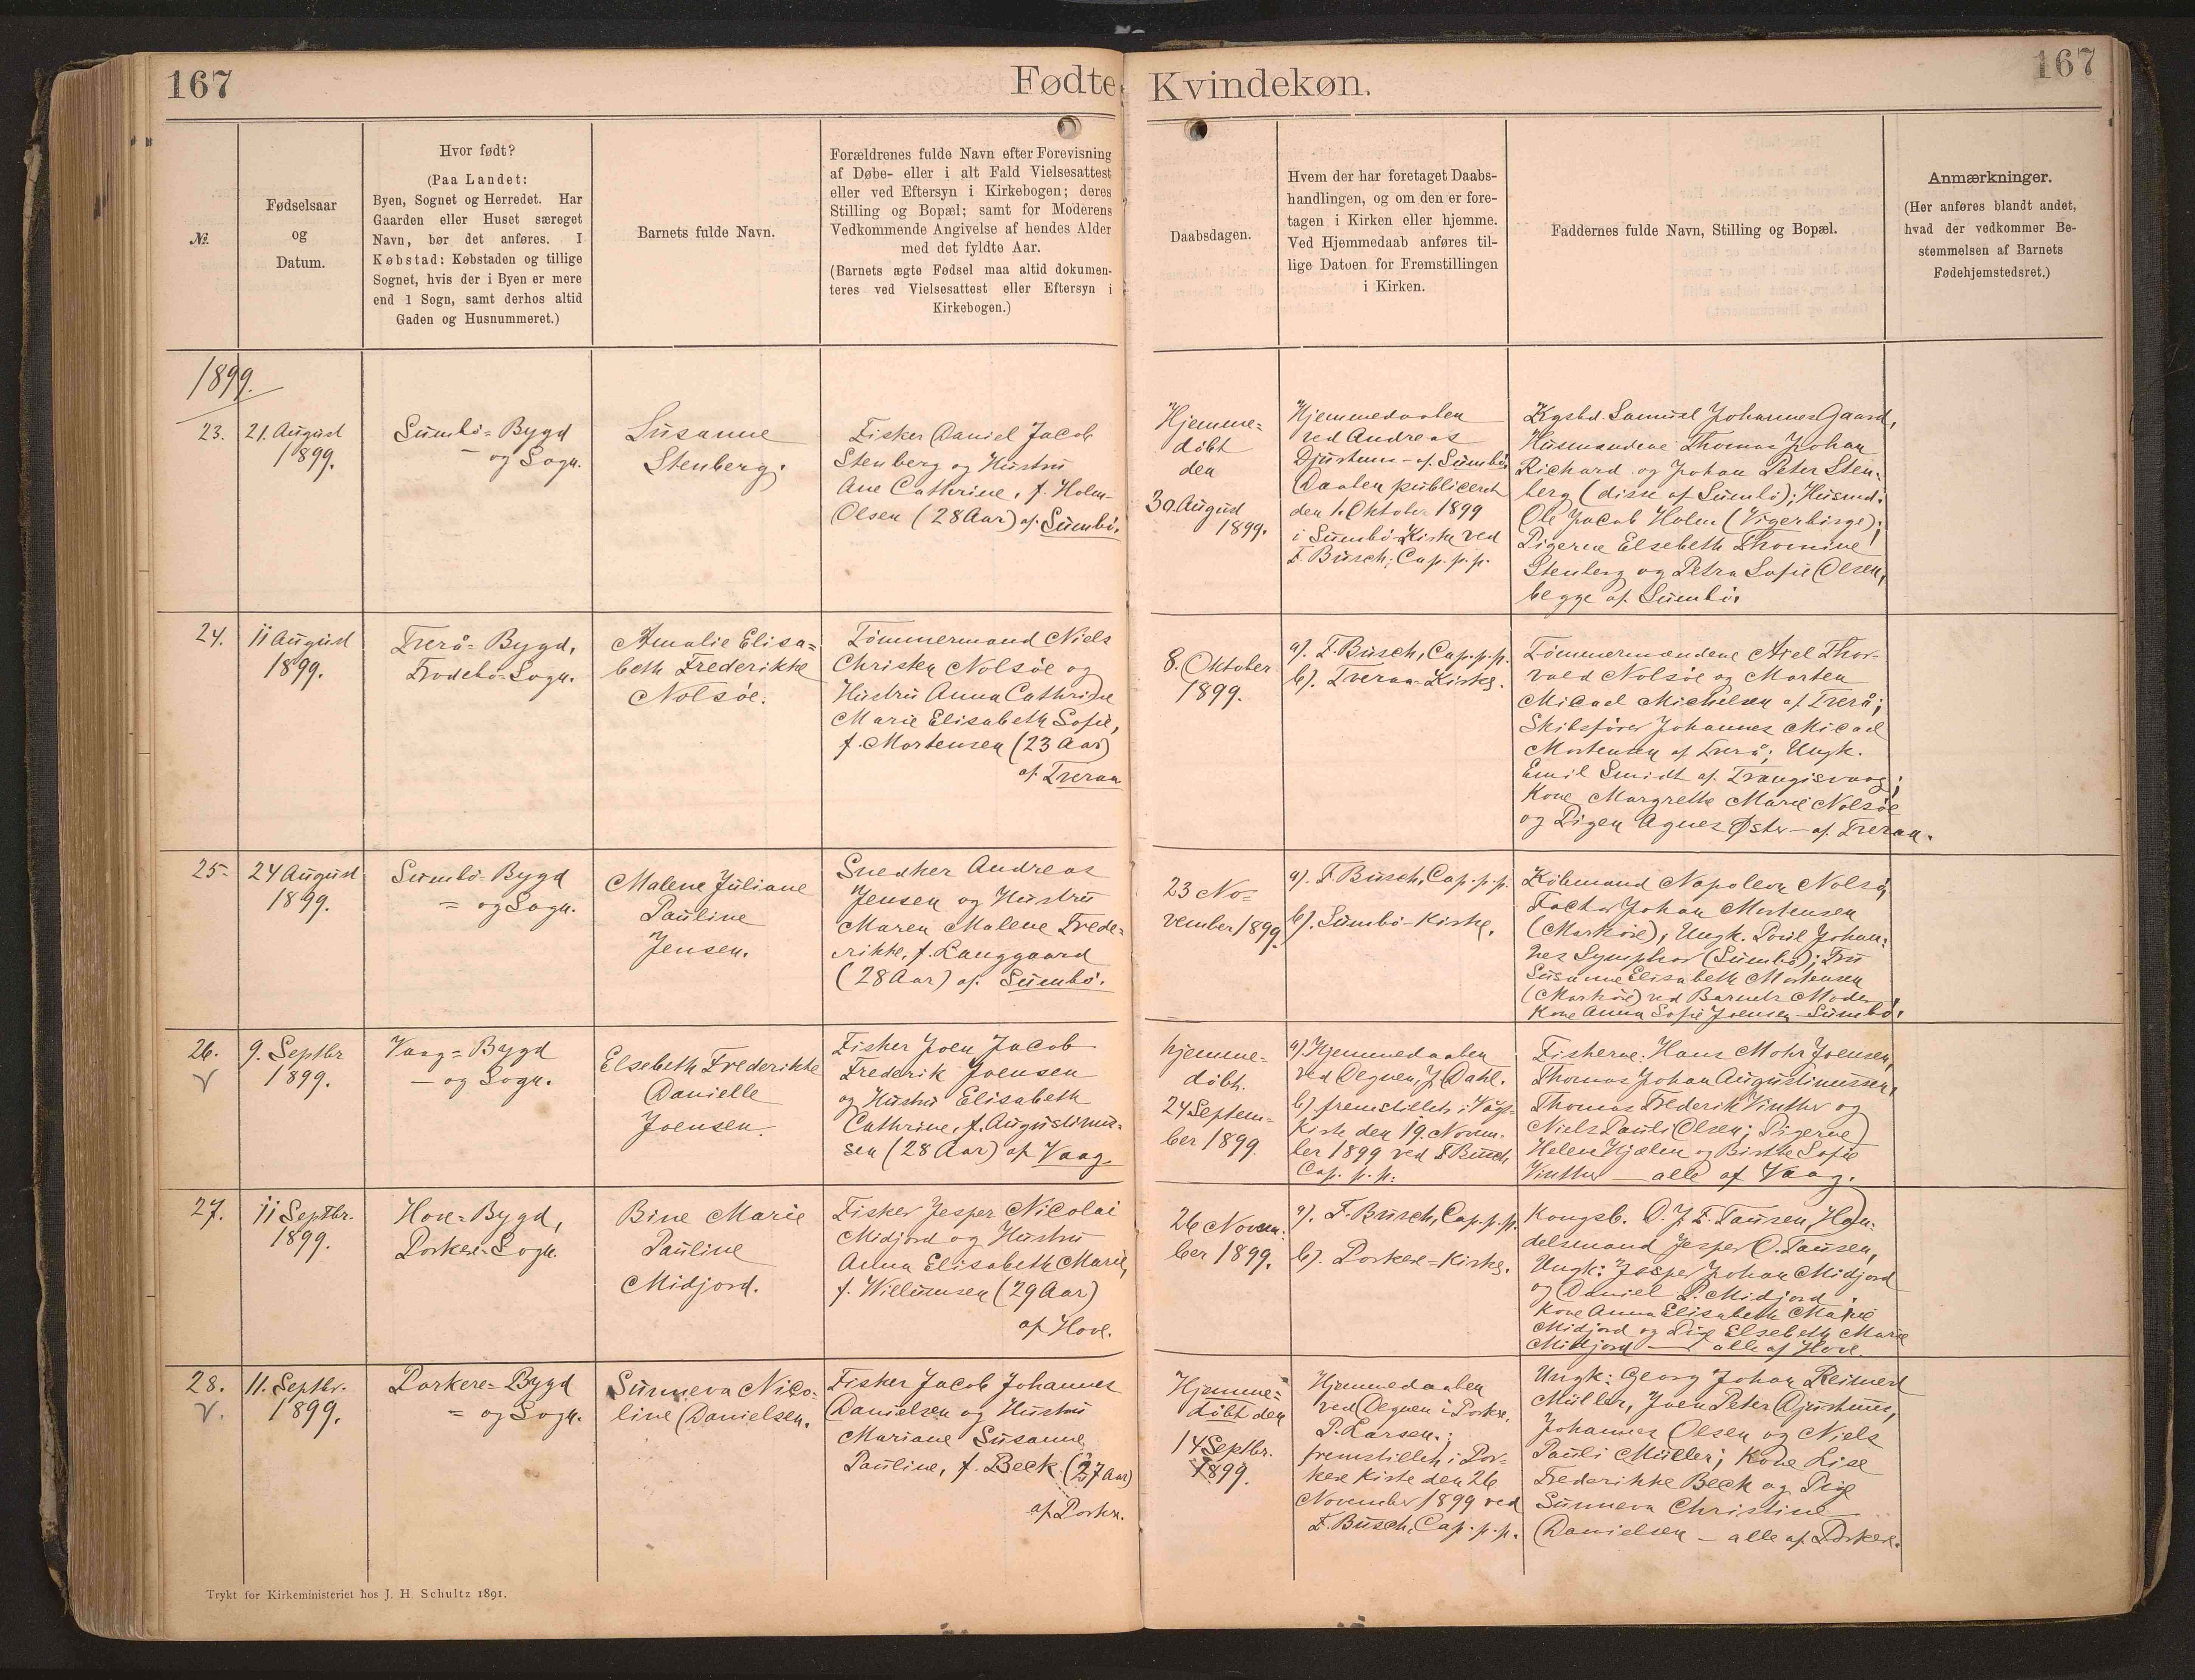 167
Fødte
Kvindekøn.
167
№.
Fødselsaar
og
Datum.
Hvor født?
(Paa Landet:
Byen, Sognet og Herredet. Har
Gaarden eller Huset særeget
Navn, bør det anføres. I
Købstad: Købstaden og tillige
Sognet, hvis der i Byen er mere
end 1 Sogn, samt derhos altid
Gaden og Husnummeret.)
Barnets fulde Navn.
Forældrenes fulde Navn efter Forevisning
af Døbe- eller i alt Fald Vielsesattest
eller ved Eftersyn i Kirkebogen; deres
Stilling og Bopæl; samt for Moderens
Vedkommende Angivelse af hendes Alder
med det fyldte Aar.
(Barnets ægte Fødsel maa altid dokumen-
teres ved Vielsesattest eller Eftersyn i
Kirkebogen.)
Daabsdagen.
Hvem der har foretaget Daabs-
handlingen, og om den er fore-
tagen i Kirken eller hjemme.
Ved Hjemmedaab anføres til-
lige Datoen for Fremstillingen
i Kirken.
Faddernes fulde Navn, Stilling og Bopæl.
Anmærkninger.
(Her anføres blandt andet,
hvad der vedkommer Be-
stemmelsen af Barnets
Fødehjemstedsret.)
1899.
23.
21. August
1899.
Sumbö=Bygd
– og Sogn.
Susanne
Stenberg.
Fisker Daniel Jacob
Stenberg og Hustru
Ane Cathrine, f. Holm-
Olsen (28 Aar) af Sumbö.
Hjemme=
döbt
den
30. August
1899.
Hjemmedaaben
ved Andreas
Djurhuus – af Sumbö
Daaben publiceret
den 1. Oktober 1899
i Sumbö-Kirke ved
F. Busch; Cap. p. p.
Kgsbd Samuel Johannes Gaard,
Husmændene Thomas Johan
Richard og Johan Peter Sten-
berg (disse af Sumbö); Husmd.
Ole Jacob Holm (Vigerbirge);
Pigerne Elsebeth Thomine
Stenberg og Petra Sofie Olsen,
begge af Sumbö.
24.
11 August
1899.
Tverå=Bygd,
Frodebö=Sogn.
Amalie Elisa=
beth Frederikke
Nolsöe.
Tömmermand Niels
Christen Nolsöe og
Hustru Anna Cathrine
Marie Elisabeth Sofie,
f. Mortensen (23 Aar)
af Tveraa
8. Oktober
1899.
a). F. Busch, Cap. p. p.
b). Tveraa-Kirke.
Tömmermændene Axel Thor-
vald Nolsöe og Morten
Micael Michelsen af Tverå;
Skibsförer Johannes Micael
Mortensen af Tverå; Ungk.
Emil Smidt af Trangisvaag;
Kone Margrethe Marie Nolsöe
og Pigen Agnes Øster – af Tveraa.
25.
24 August
1899.
Sumbö=Bygd
= og Sogn.
Malene Juliane
Pauline
Jensen.
Snedker Andreas
Jensen og Hustru
Maren Malene Frede-
rikke, f. Langgaard
(28 Aar) af Sumbö.
23 No=
vember 1899.
a). F. Busch, Cap. p. p.
b). Sumbö-Kirke.
Köbmand Napoleon Nolsö,
Factor Johan Mortensen
(Morköre), Ungk. Poul Johan-
nes Symphor (Sumbö); Fru
Susanne Elisabeth Mortensen
(Morköre) ved Barnets Moder
Kone Anna Sofie Joensen – Sumbö.
26.
V
9. Septbr
1899.
Vaag=Bygd
– og Sogn.
Elsebeth Frederikke
Danielle
Joensen.
Fisker Joen Jacob
Frederik Joensen
og Hustru Elisabeth
Cathrine, f. Augustinus-
sen (28 Aar) af Vaag.
hjemme=
döbt.
24 Septem-
ber 1899.
a) Hjemmedaaben
ved Degnen J. Dahl.
b) fremstillet i Vågs-
Kirke den 19. Novem-
ber 1899 ved F. Busch
Cap. p. p.
Fiskerne: Hans Mohr Joensen,
Thomas Johan Augustinussen,
Thomas Frederik Vinther og
Niels Pauli Olsen; Pigerne
Helene Hjælm og Birthe Sofie
Vinther — alle af Vaag.
27.
11 Septbr.
1899.
Hove=Bygd,
Porkere-Sogn.
Bine Marie
Pauline
Midjord.
Fisker Jesper Nicolai
Midjord og Hustru
Anna Elisabeth Marie,
f. Willumsen (29 Aar)
af Hove.
26 Novem-
ber 1899.
a). F. Busch, Cap. p. p.
b). Porkere=Kirke.
Kongsb. O. J. F. Tausen, Han-
delsmand Jesper O. Tausen,
Ungk: Jesper Johan Midjord
og Daniel P. Midjord;
Kone Anna Elisabeth Marie
Midjord og Pige Elsebeth Marie
Midjord — alle af Hove.
28.
V.
11. Septbr.
1899.
Porkere=Bygd
= og Sogn.
Sunneva Nico-
line Danielsen.
Fisker Jacob Johannes
Danielsen og Hustru
Mariane Susanne
Pauline, f. Beck (27 Aar)
af Porkere.
Hjemme=
döbt den
14 Septbr.
1899.
Hjemmedaaben
ved Degnen i Porkere,
P. Larsen.;
fremstillet i Por-
kere Kirke den 26
November 1899 ved
F. Busch, Cap. p. p.
Ungk: Georg Johan Reinert
Müller, Joen Peter Djurhuus,
Johannes Olsen og Niels
Pauli Müller; Kone Lise
Frederikke Beck og Pige
Sunneva Christine
Danielsen – alle af Porkere.
Trykt for Kirkeministeriet hos J. H. Schultz 1891.